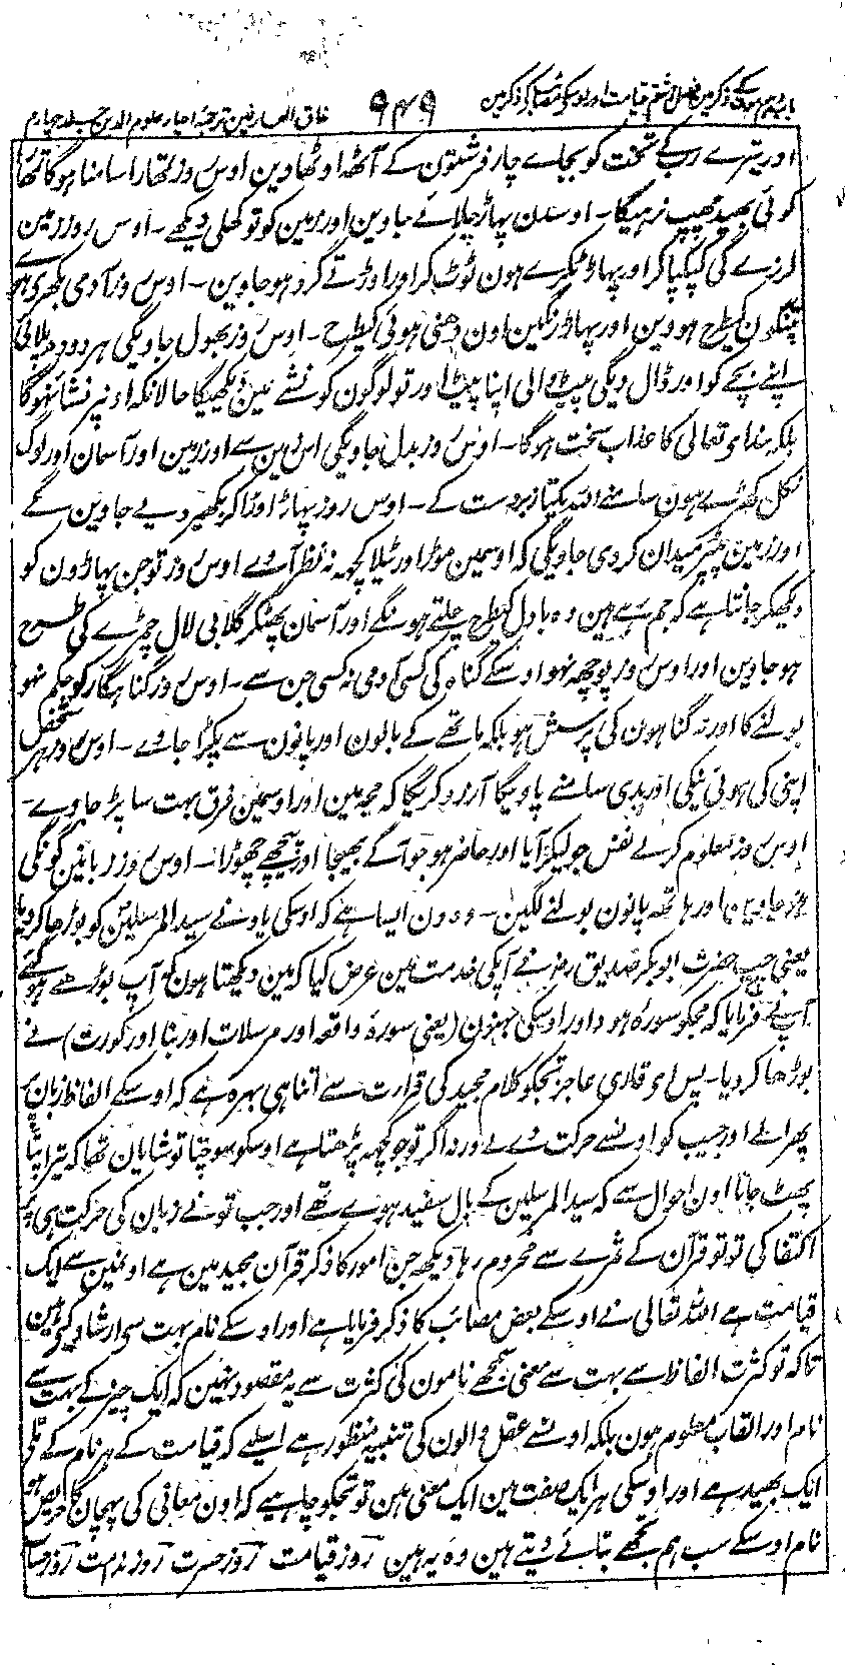 باب دہم موت کے ذکر مین فصل ششم قیامت اور اوسکے مصائب کے ذکر مین ۹۴۹ مذاق العارفین ترجمۂ احیاء علوم الدین جلد چہارم
اور تیرے رب کے تخت کو بجاے چار فرشتون کے آٹھ اوٹھا دین اوس روز تمھارا سامنا ہوگا تمھارا
کوئی بھید چھپ نرہیگا ۔ اوسدن پہاڑ چلائے جاوین اور زمین کو تو کھلی دیکھے ۔ اوس روز زمین
لرزے گی کپکپا کر اور پہاڑ ٹکڑے ہون ٹوٹ کر اور اوڑتے گرد ہو جاوین ۔ اوس روز آدمی بکھرے ہوے
پتنگون کیطرح ہووین اور پہاڑ رنگین اون دھنی ہوئی کیطرح ۔ اوس روز بھول جاویگی ہر دودھ پلائی
اپنے بچے کو اور ڈال دیگی پیٹ والی اپنا پیٹ اور تو لوگون کو نشے مین دیکھیگا حالانکہ اونپر نشا نہوگا
بلکہ خداے تعالی کا عذاب سخت ہوگا ۔ اوس روز بدل جاویگی اس زمین سے اور زمین اور آسمان اور لوگ
نکل کھڑے ہون سامنے اللہ یکتا زبردست کے ۔ اوس روز پہاڑ اوڑا کر بکھیر دیے جاوین گے
اور زمین چٹیل میدان کر دی جاویگی کہ اوسمین موڑ اور ٹیلا کچھ نہ نظر آوے اوس روز تو جن پہاڑون کو
دیکھکر جانتا ہے کہ جم رہے ہین وہ بادل کیطرح چلتے ہونگے اور آسمان پھٹکر گلابی لال چمڑے کی طرح
ہو جاوین اور اوس روز پوچھ نہو اوسکے گناہ کی کسی آدمی نہ کسی جن سے ۔ اوس روز گناہگار کو حکم نہو
بولنے کا اور نہ گناہون کی پرسش ہو بلکہ ماتھے کے بالون اور پانون سے پکڑا جاوے ۔ اوس روز ہر شخص
اپنی کی ہوئی نیکی اور بدی سامنے پاویگا آرزو کریگا کہ مجھ مین اور اوسمین فرق بہت سا پڑ جاوے ۔
اوس روز معلوم کرلے نفس جو لیکر آیا اور حاضر ہو جو آگے بھیجا اور پیچھے چھوڑا ۔ اوس روز زبانین گونگی
ہو جاوین اور ہاتھ پانون بولنے لگین ۔ وہ دن ایسا ہے کہ اوسکی یاد نے سید المرسلین کو بوڑھا کر دیا
یعنی جب حضرت ابوبکر صدیق رضہ نے آپکی خدمت مین عرض کیا کہ مین دیکھتا ہون کہ آپ بوڑھے ہو گئے
آپ نے فرمایا کہ مجکو سورۂ ہود اور اوسکی بہنون (یعنی سورۂ واقعہ اور مرسلات اور نبا اور کورت) نے
بوڑھا کر دیا ۔ پس اے قاری عاجز تجکو کلام مجید کی قرارت سے اتنا ہی بہرہ ہے کہ اوسکے الفاظ زبان پر
پھرالے اور جیب کو اونسے حرکت دے لے ورنہ اگر تو جو کچھ پڑھتا ہے اوسکو سوچتا تو شایان تھا کہ تیرا پتا
پھٹ جاتا اون احوال سے کہ سید المرسلین کے بال سفید ہوے تھے اور جب تو نے زبان کی حرکت ہی پر
اکتفا کی تو تو قرآن کے ثمرے سے محروم رہا دیکھ جن امور کا ذکر قرآن مجید مین ہے اونمین سے ایک
قیامت ہے اللہ تعالی نے اوسکے بعض مصائب کا ذکر فرمایا ہے اور اوسکے نام بہت سے ارشاد کیے ہین
تاکہ تو کثرت الفاظ سے بہت سے معنی سمجھے نامون کی کثرت سے یہ مقصود نہین کہ ایک چیز کے بہت سے
نام اور القاب معلوم ہون بلکہ اونسے عقل والون کی تنبیہ منظور ہے اسلیے کہ قیامت کے ہر نام کے تلے
ایک بھید ہے اور اوسکی ہر ایک صفت مین ایک معنی ہین تو تجکو چاہیے کہ اون معانی کی پہچان کا حریص ہو
نام اوسکے سب ہم تجھے بتائے دیتے ہین وہ یہ ہین روز قیامت روز حسرت روز ندامت روز حساب